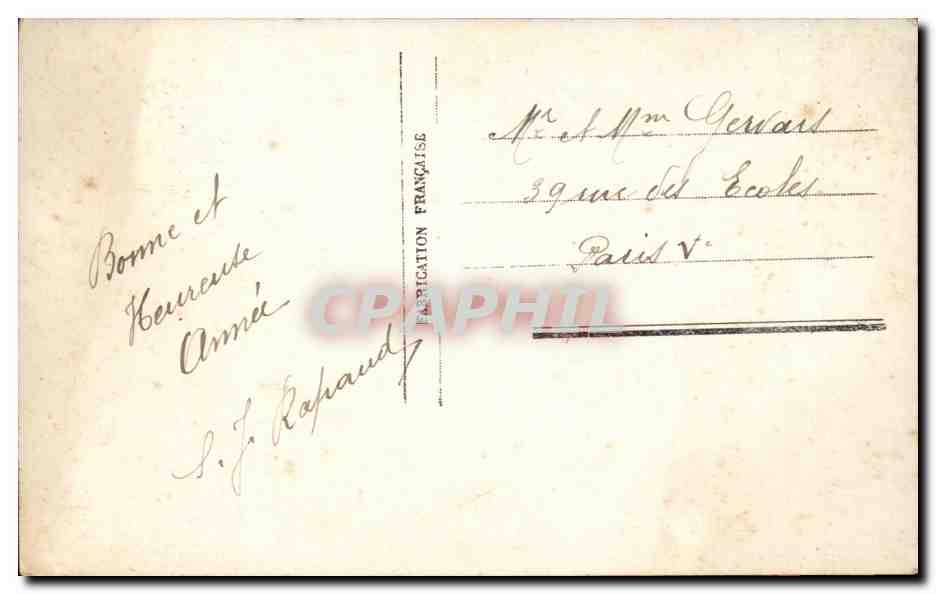 Bonne et
Heureuse
Année
S. J. Rapaud
FABRICATION FRANÇAISE
Mr et Mm Gervais
39 rue des Ecoles
Paris Ve
CPAPHIL